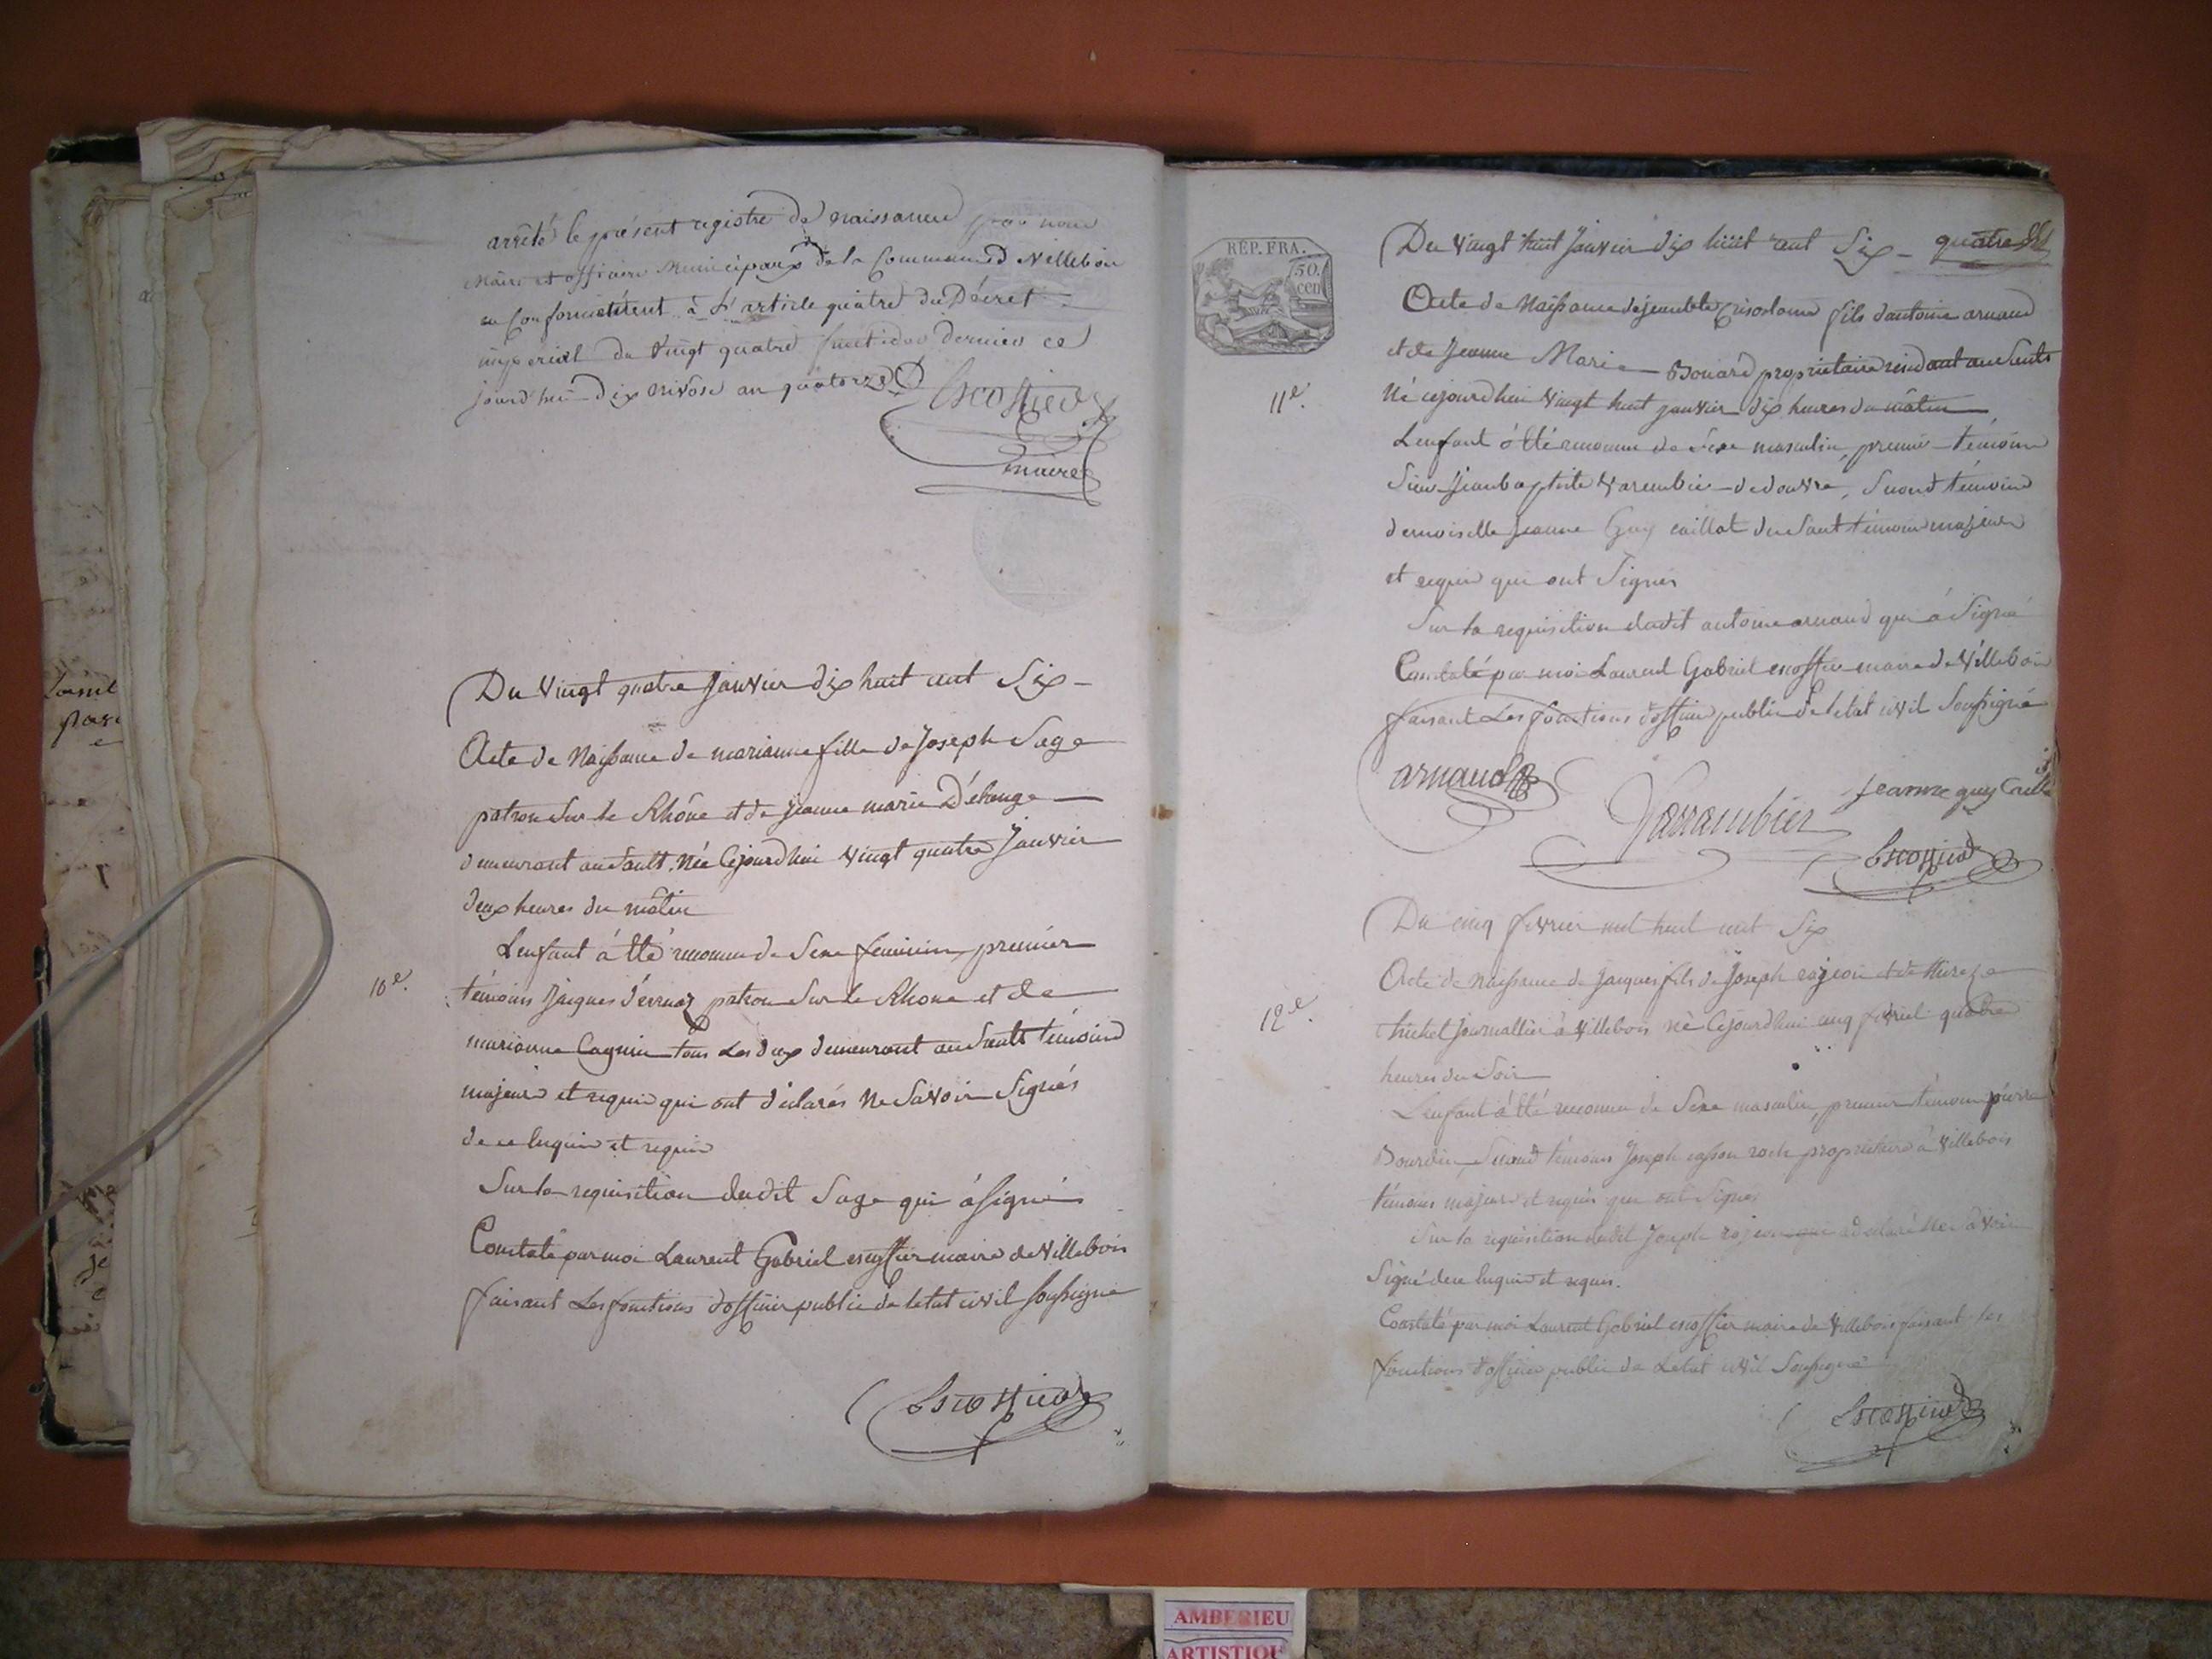 arrêté le présent registre de naissance par nous
Maire et officier Municipaux de la Commune de Villebois
en Conformément à l'article quatre du Décret
impérial du Vingt quatre fructidor dernier ce
jourd'hui dix nivôse an quatorze
Escoffier
maire
Du Vingt quatre Janvier dix huit cent Six
10e.
Acte de Naissance de marianne fille de Joseph Sage
patron Sur le Rhône et de jeanne marie
demeurant au Sault. Née Cejourdhui Vingt quatre Janvier
deux heures du mâtin
L'enfant à été reconnu de Sexe feminin, premier
témoins Jacques patron Sur le Rhone et de
marianne Cagnin tous Les deux demeurant au Sault témoins
majeurs et requis qui ont déclarés Ne Savoir Signés
de ce Enquis et requis
Sur la requisition dudit Sage qui à signé
Constaté par moi Laurent Gabriel escoffier maire de Villebois
faisant Les fonctions d'officier public de letat civil soussigné
Escoffier
REP. FRA.
50.
cen
Du Vingt huit Janvier dix huit cent Six quatre
11e.
Acte de Naissance de jeanbte Crisostome fils d'antoine arnaud
et de Jeanne Marie Bouard propriétaire residant au Sault
Né cejourdhui Vingt huit janvier dix heures du mâtin
L'enfant à été reconnu de Sexe masculin, premier témoins
Sieur Jean baptiste Varembier de douvre, Second témoins
demoiselle jeanne Guy caillat du Sault témoins majeurs
et requis qui ont Signés
Sur la requisition dudit antoine arnaud qui à Signé
Constaté par moi Laurent Gabriel escoffier maire de Villebois
faisant Les fonctions d'officier public de letat civil Soussigné
arnaud
Varrambier
jeanne guy Caillat
Escoffier
Du cinq fevrier mil huit cent Six
12e.
Acte de Naissance de jacques fils de Joseph rojeon et de
trichet journallier à Villebois né Cejourdhui cinq fevrier quatre
heures du Soir
L'enfant à été reconnu de Sexe masculin, premier témoins pierre
Bourdin, Second témoins Joseph roch propriétaire à Villebois
témoins majeurs et requis qui ont Signés
Sur la requisition dudit Joseph rojeon qui a déclaré Ne Savoir
Signé de ce Enquis et requis.
Constaté par moi Laurent Gabriel escoffier maire de Villebois faisant les
fonctions d'officier public de Letat civil Soussigné
Escoffier
AMBERIEU
ARTISTIQUE